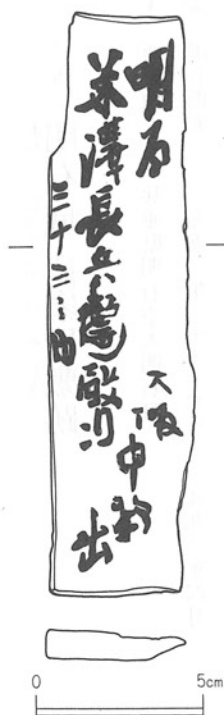 明石
米澤長兵衛殿行
三十三之内
大阪
中
出
0 5cm